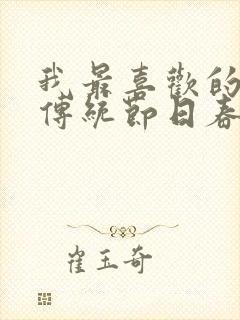 我最喜歡的
傳統節日春
崔玉奇